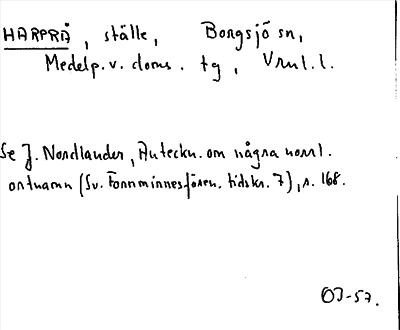 HARPRÅ, ställe, Borgsjö sn,
Medelp. v. doms. tg, Vrnl. l.
Se J. Nordlander, Anteckn. om några norrl.
ortnamn (Sv. Fornminnesfören. tidskr. 7), s. 168.
OJ-57.